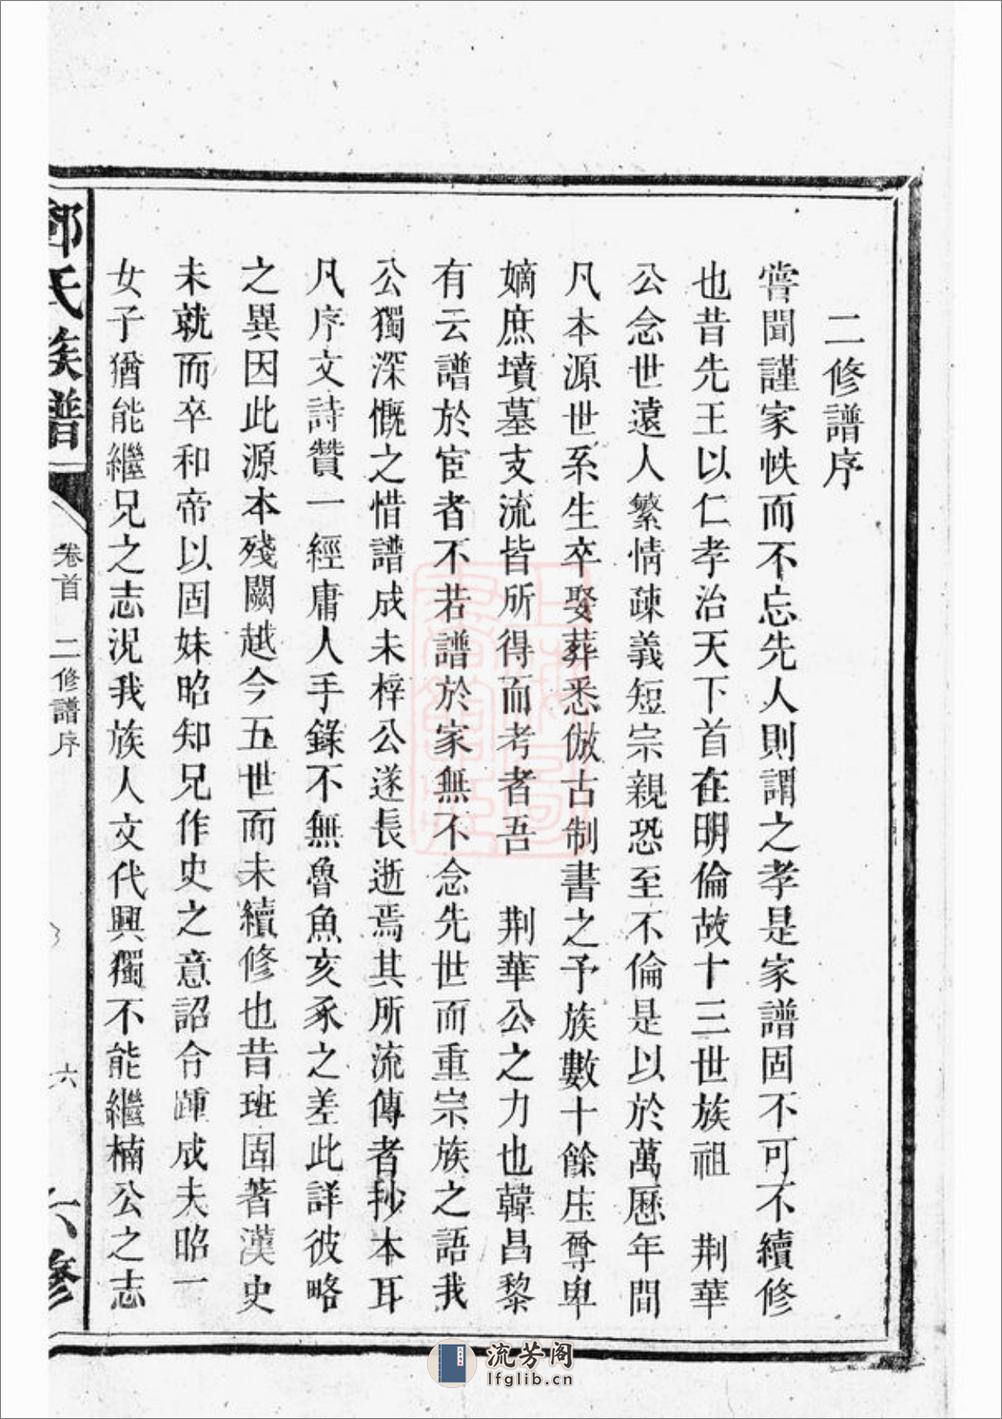 二修譜序
嘗聞謹家帙而不忘先人則謂之孝是家譜固不可不續修
也昔先王以仁孝治天下首在明倫故十三世族祖　荆華
公念世遠人繁情疎義短宗親恐至不倫是以於萬厯年間
凡本源世系生卒娶葬悉倣古制書之予族數十餘庄尊卑
嫡庶墳墓支流皆所得而考者吾　荆華公之力也韓昌黎
有云譜於宦者不若譜於家無不念先世而重宗族之語我
公獨深慨之惜譜成未梓公遂長逝焉其所流傳者抄本耳
凡序文詩贊一經庸人手錄不無魯魚亥豕之差此詳彼略
之異因此源本殘闕越今五世而未續修也昔班固著漢史
未就而卒和帝以固妹昭知兄作史之意詔令踵成夫昭一
女子猶能繼兄之志況我族人文代興獨不能繼楠公之志
氏族譜
卷首　二修譜序
六
六修
流芳阁
lfglib.cn